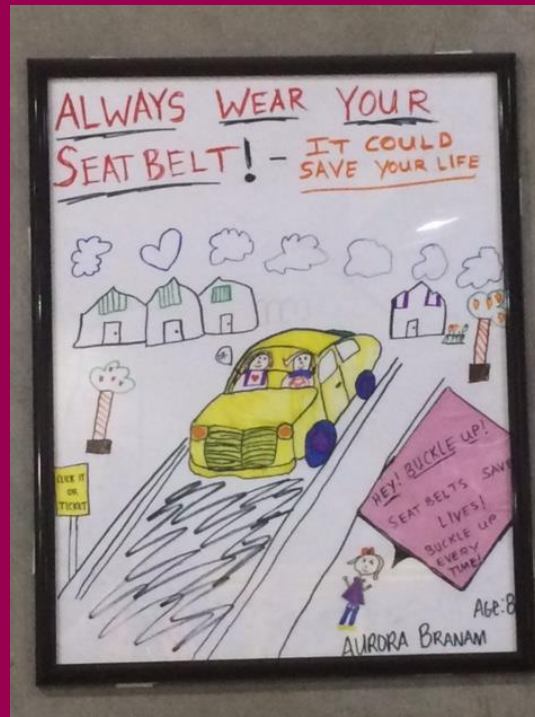 ALWAYS WEAR YOUR
SEAT BELT! - IT COULD
SAVE YOUR LIFE
CLICK IT
OR
TICKET
HEY! BUCKLE UP!
SEAT BELTS SAVE
LIVES!
BUCKLE UP
EVERY
TIME!
AGE: 8
AURORA BRANAM